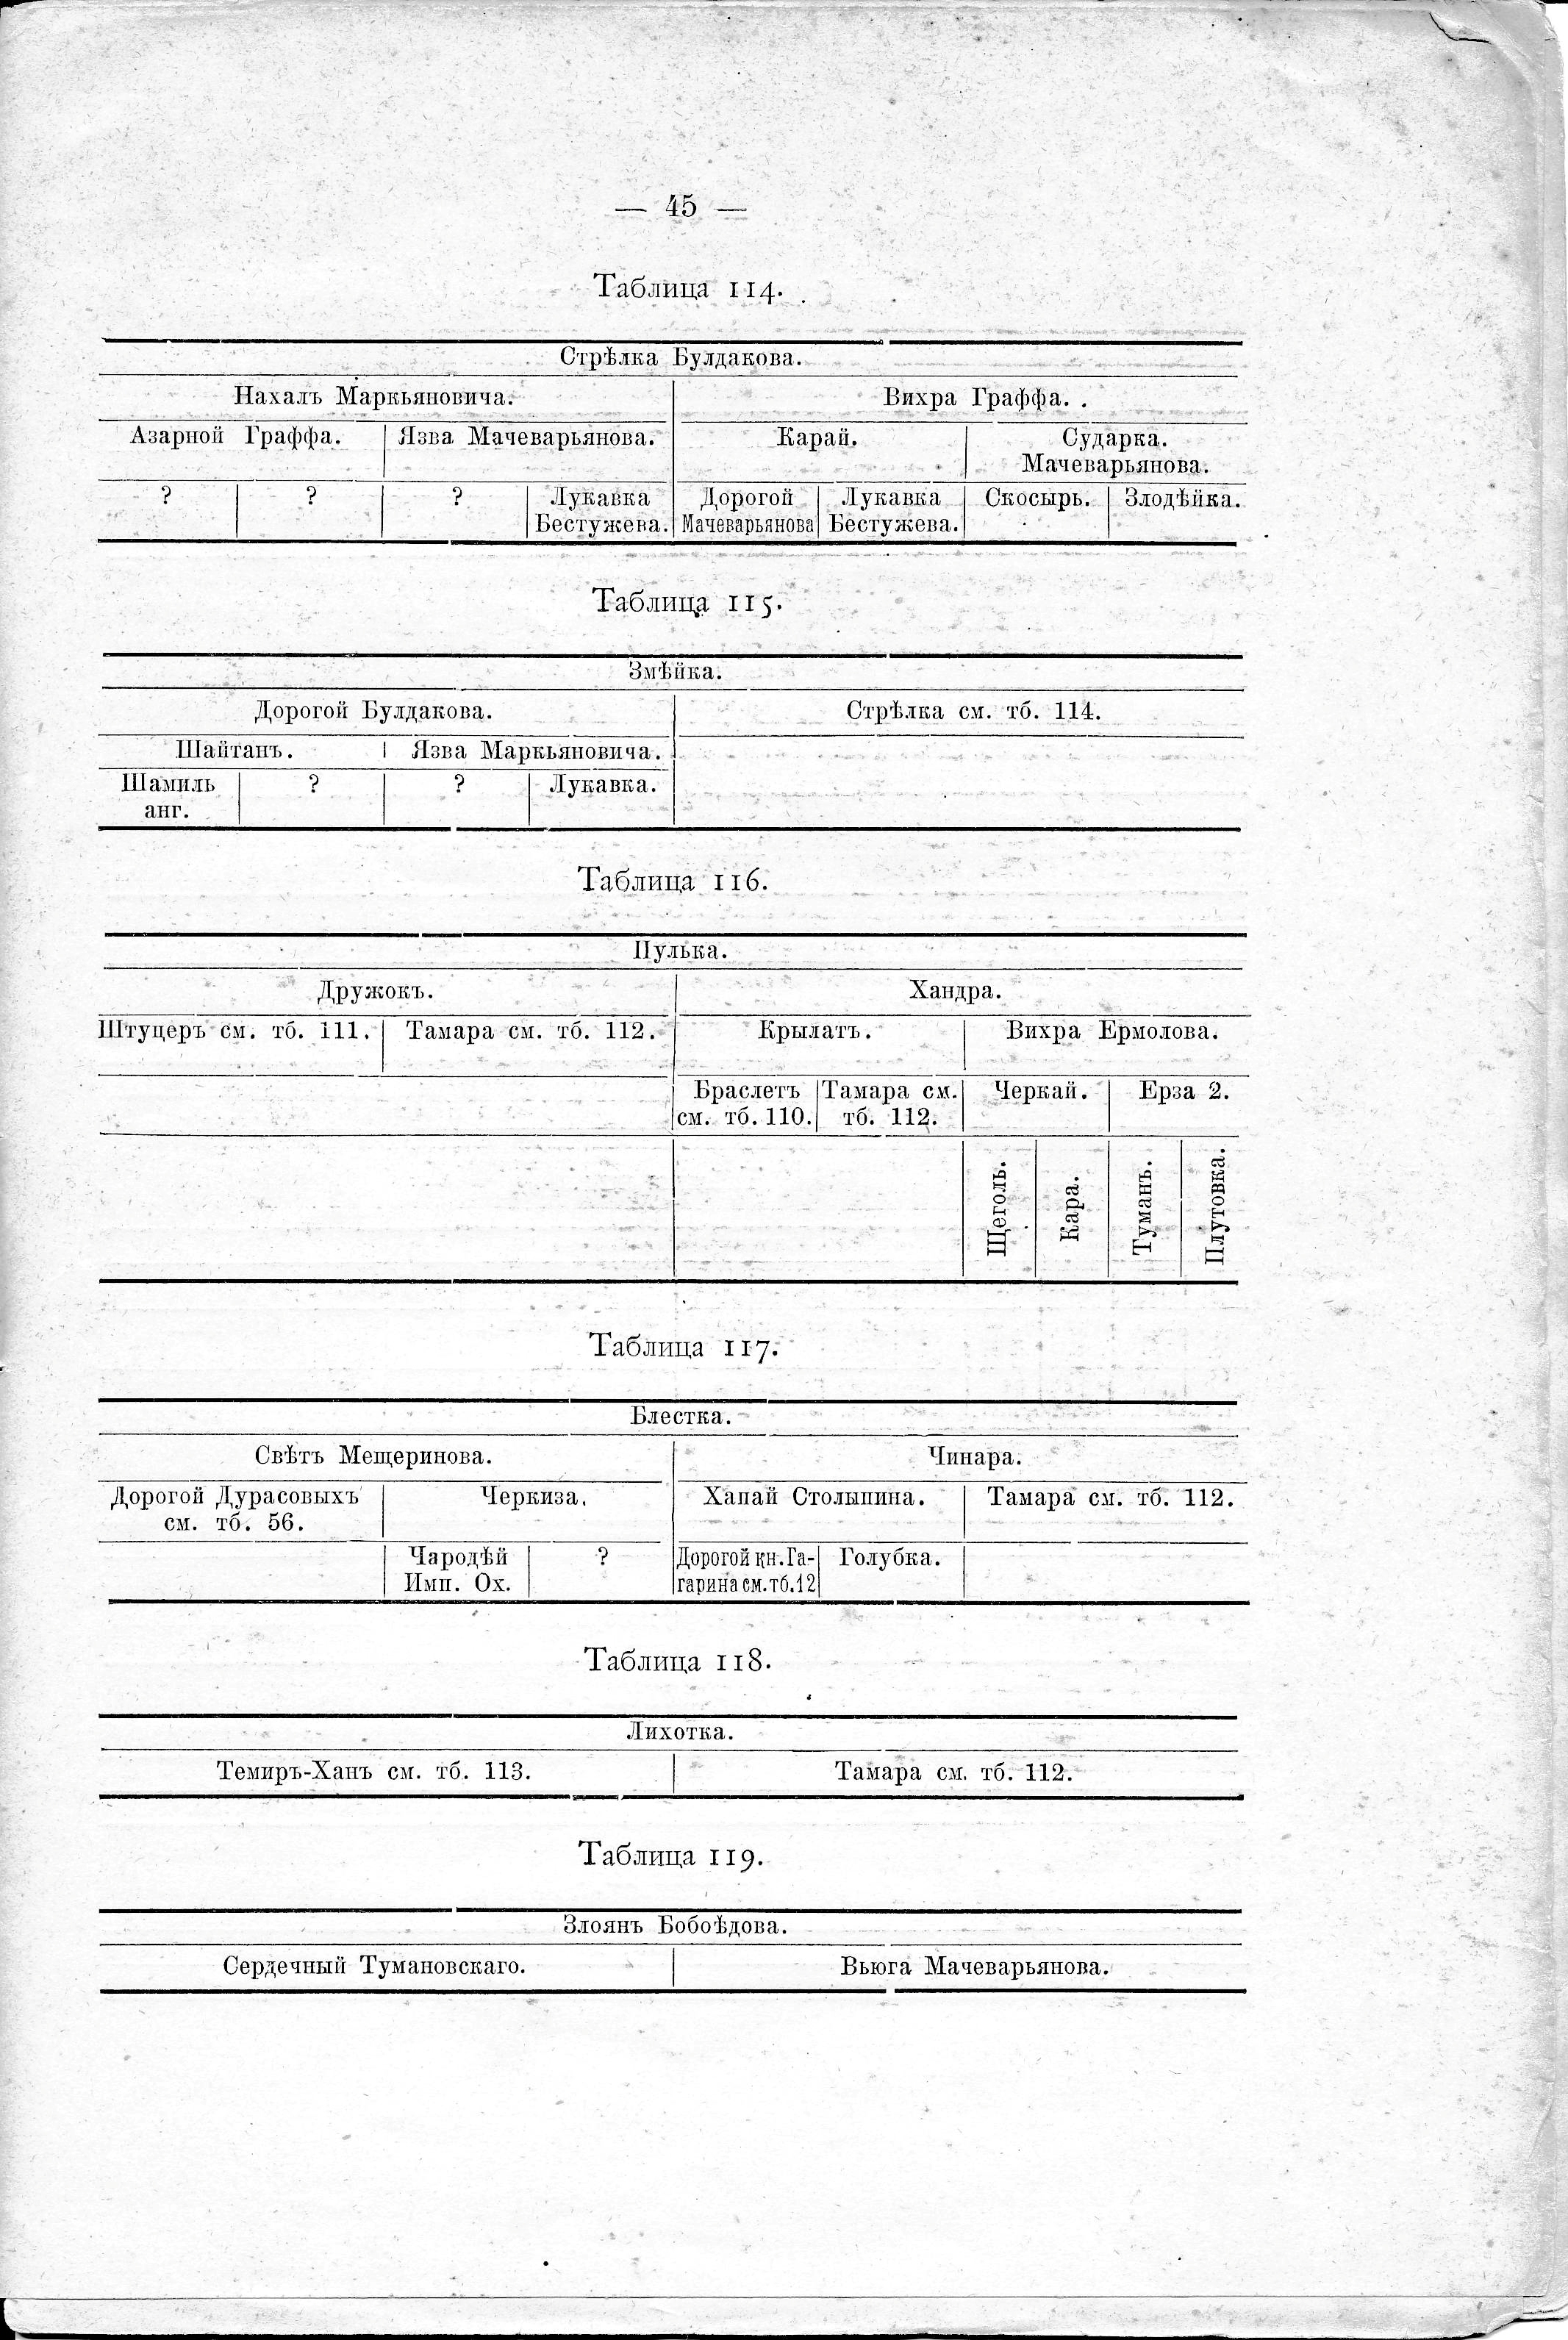 — 45 —
Таблица 114.
Стрѣлка Булдакова.
Нахалъ Маркьяновича. Вихра Граффа.
Азарной Граффа. Язва Мачеварьянова. Карай. Сударка.
Мачеварьянова.
? ? ? Лукавка Дорогой Лукавка Скосырь. Злодѣйка.
Бестужева. Мачеварьянова Бестужева.
Таблица 115.
Змѣйка.
Дорогой Булдакова. Стрѣлка см. тб. 114.
Шайтанъ. Язва Маркьяновича.
Шамиль ? ? Лукавка.
анг.
Таблица 116.
Пулька.
Дружокъ. Хандра.
Штуцеръ см. тб. 111. Тамара см. тб. 112. Крылатъ. Вихра Ермолова.
Браслетъ Тамара см. Черкай. Ерза 2.
см. тб. 110. тб. 112.
Щеголь. Кара. Туманъ. Плутовка.
Таблица 117.
Блестка.
Свѣтъ Мещеринова. Чинара.
Дорогой Дурасовыхъ Черкиза. Хапай Столыпина. Тамара см. тб. 112.
см. тб. 56.
Чародѣй ? Дорогой кн. Га- Голубка.
Имп. Ох. гарина см. тб. 12
Таблица 118.
Лихотка.
Темиръ-Ханъ см. тб. 113. Тамара см. тб. 112.
Таблица 119.
Злоянъ Бобоѣдова.
Сердечный Тумановскаго. Вьюга Мачеварьянова.